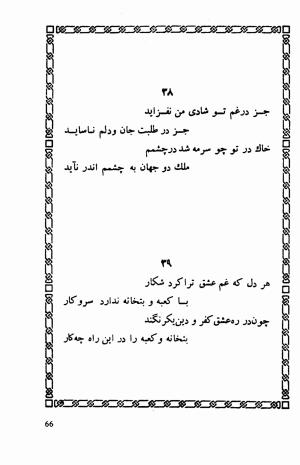 ۳۸
جـز درغم تـو شادی من نفـزاید
جـز در طلبت جان ودلم ناسایـد
خاك در تو چو سرمه شد درچشمم
ملك دو جهان به چشمم اندر نآید
۳۹
هر دل که غم عشق تراکرد شکار
بـا کعبه و بتخانه ندارد سروکار
چون‌در ره‌عشق کفر و دین‌یکرنگند
بتخانه وکعبه را در این راه چه‌کار
66